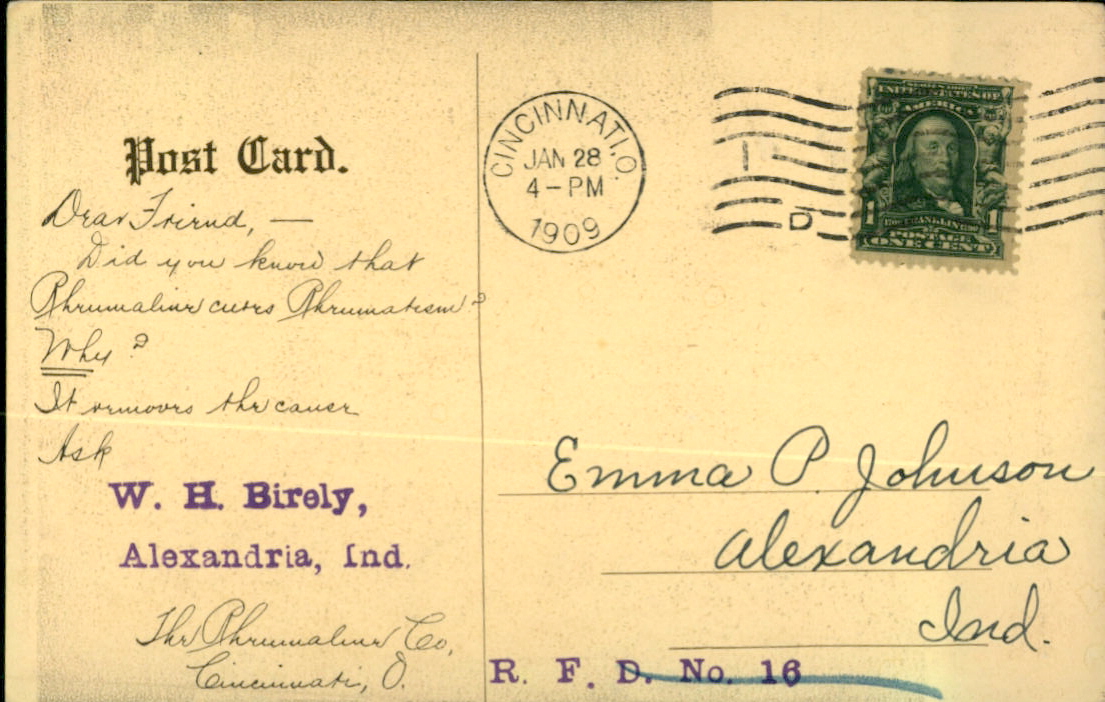 Post Card.
Dear Friend, —
Did you know that
Rheumaline cures Rheumatism?
Why?
It removes the cause
Ask
W. H. Birely,
Alexandria, Ind.
The Rheumaline Co,
Cincinnati, O.
CINCINNATI, O.
JAN 28
4 - PM
1909
D
UNITED STATES OF
AMERICA
1 FRANKLIN 1
POSTAGE
ONE CENT
Emma P. Johnson
Alexandria
Ind.
R. F. D. No. 16